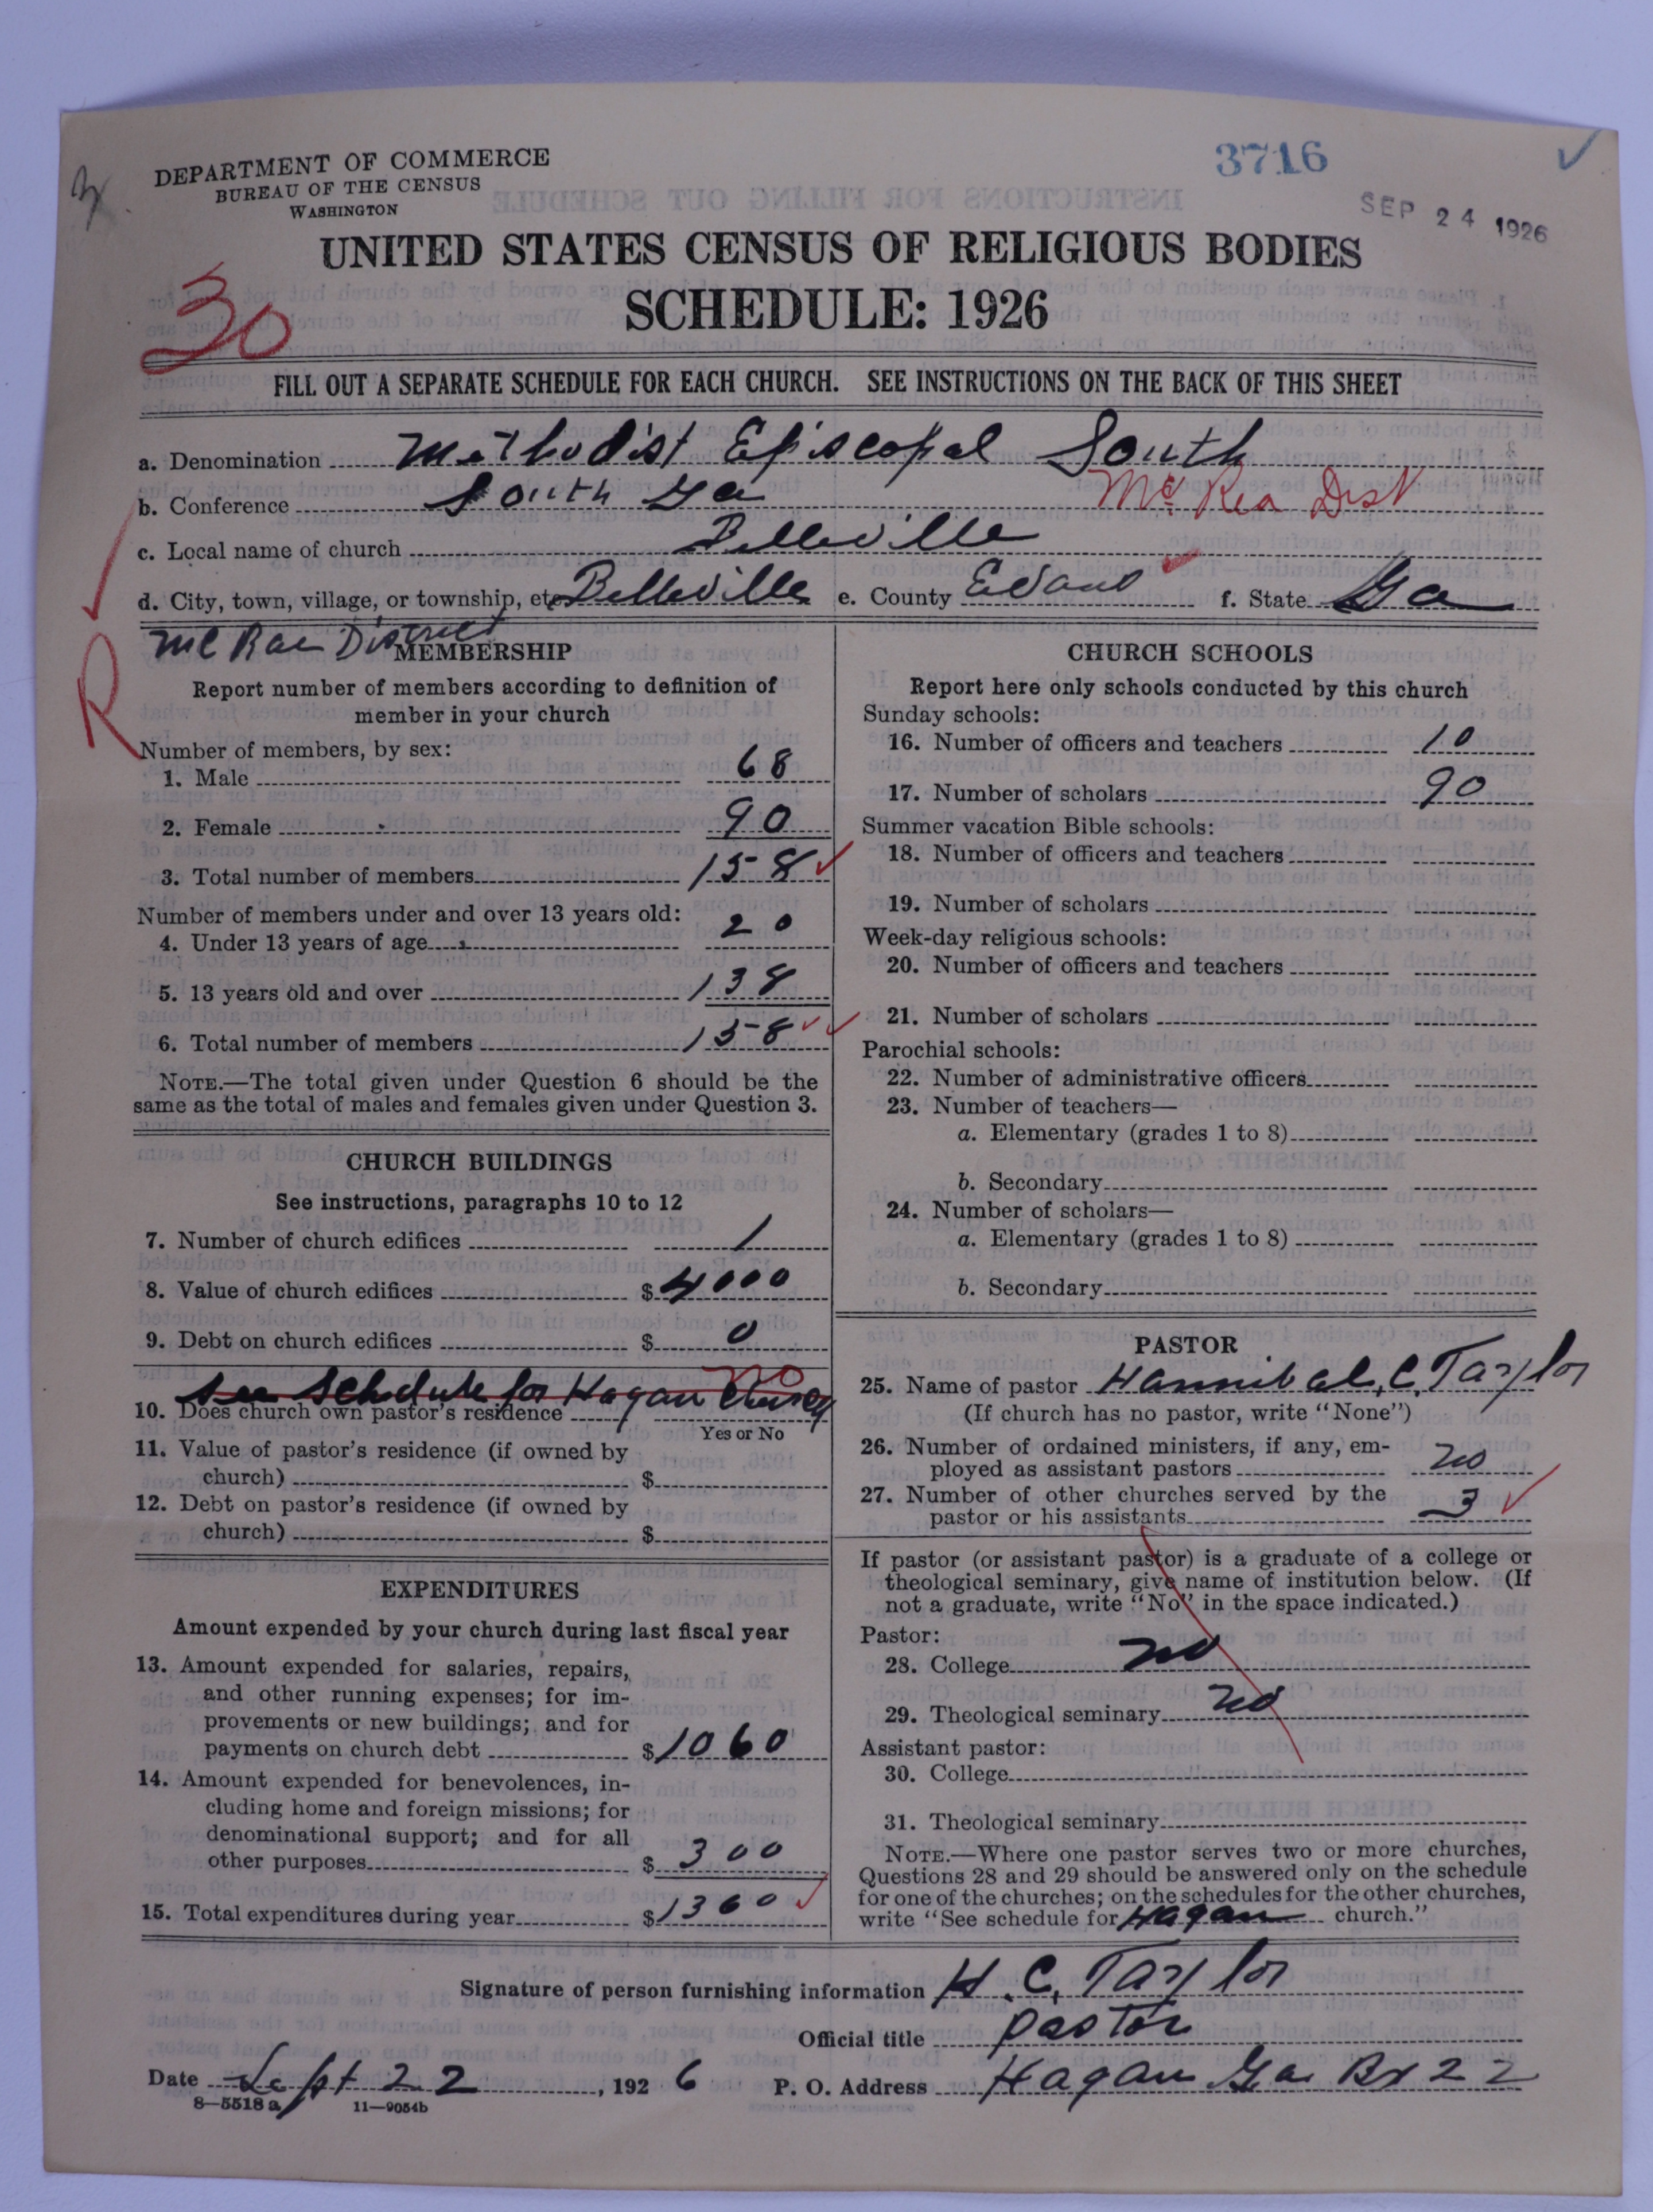 DEPARTMENT OF COMMERCE
BUREAU OF THE CENSUS
WASHINGTON
3716
SEP 24 1926
UNITED STATES CENSUS OF RELIGIOUS BODIES
SCHEDULE: 1926
30
FILL OUT A SEPARATE SCHEDULE FOR EACH CHURCH. SEE INSTRUCTIONS ON THE BACK OF THIS SHEET
a. Denomination Methodist Episcopal South
b. Conference South Ga Mc Rea Dist
c. Local name of church Belleville
d. City, town, village, or township, etc. Belleville e. County Evans f. State Ga
Mc Rae District
R
MEMBERSHIP
Report number of members according to definition of
member in your church
Number of members, by sex:
1. Male 68
2. Female 90
3. Total number of members 158
Number of members under and over 13 years old:
4. Under 13 years of age 20
5. 13 years old and over 138
6. Total number of members 158
NOTE.—The total given under Question 6 should be the
same as the total of males and females given under Question 3.
CHURCH BUILDINGS
See instructions, paragraphs 10 to 12
7. Number of church edifices 1
8. Value of church edifices $ 4000
9. Debt on church edifices $ 0
See Schedule for Hagan Church
No
10. Does church own pastor's residence
Yes or No
11. Value of pastor's residence (if owned by
church) $
12. Debt on pastor's residence (if owned by
church) $
EXPENDITURES
Amount expended by your church during last fiscal year
13. Amount expended for salaries, repairs,
and other running expenses; for im-
provements or new buildings; and for
payments on church debt $ 1060
14. Amount expended for benevolences, in-
cluding home and foreign missions; for
denominational support; and for all
other purposes $ 300
15. Total expenditures during year $ 1360
CHURCH SCHOOLS
Report here only schools conducted by this church
Sunday schools:
16. Number of officers and teachers 10
17. Number of scholars 90
Summer vacation Bible schools:
18. Number of officers and teachers
19. Number of scholars
Week-day religious schools:
20. Number of officers and teachers
21. Number of scholars
Parochial schools:
22. Number of administrative officers
23. Number of teachers—
a. Elementary (grades 1 to 8)
b. Secondary
24. Number of scholars—
a. Elementary (grades 1 to 8)
b. Secondary
PASTOR
25. Name of pastor Hannibal, C, Taylor
(If church has no pastor, write "None")
26. Number of ordained ministers, if any, em-
ployed as assistant pastors no
27. Number of other churches served by the
pastor or his assistants 3
If pastor (or assistant pastor) is a graduate of a college or
theological seminary, give name of institution below. (If
not a graduate, write "No" in the space indicated.)
Pastor:
28. College no
29. Theological seminary no
Assistant pastor:
30. College
31. Theological seminary
NOTE.—Where one pastor serves two or more churches,
Questions 28 and 29 should be answered only on the schedule
for one of the churches; on the schedules for the other churches,
write "See schedule for Hagan church."
Signature of person furnishing information H. C, Taylor
Official title Pastor
Date Sept 22, 1926 P. O. Address Hagan Ga Bx 22
8—5518 a 11—9054b